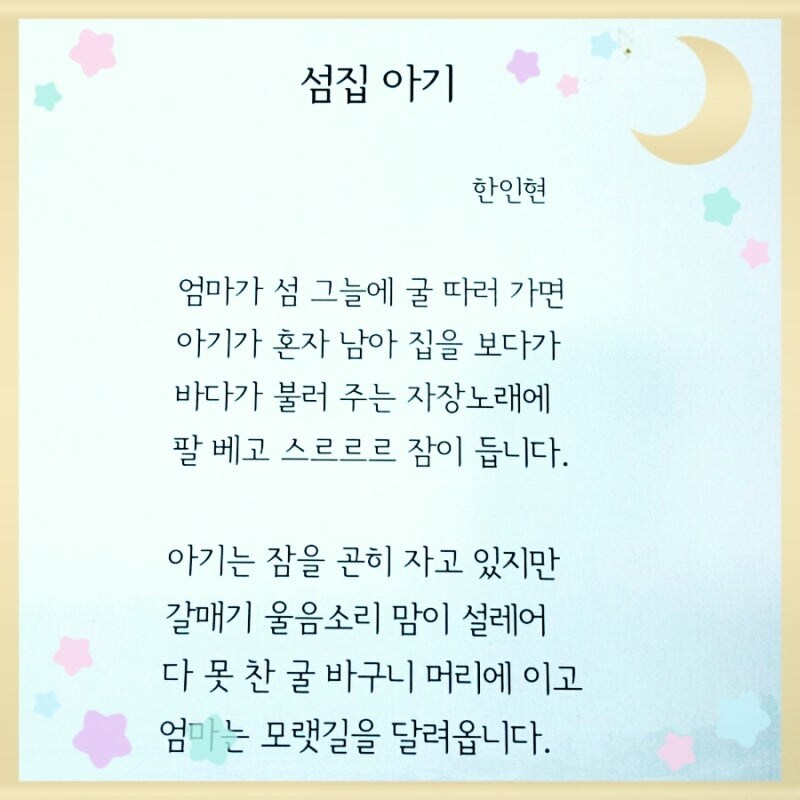 섬집 아기
한인현
엄마가 섬 그늘에 굴 따러 가면
아기가 혼자 남아 집을 보다가
바다가 불러 주는 자장노래에
팔 베고 스르르르 잠이 듭니다.
아기는 잠을 곤히 자고 있지만
갈매기 울음소리 맘이 설레어
다 못 찬 굴 바구니 머리에 이고
엄마는 모랫길을 달려옵니다.